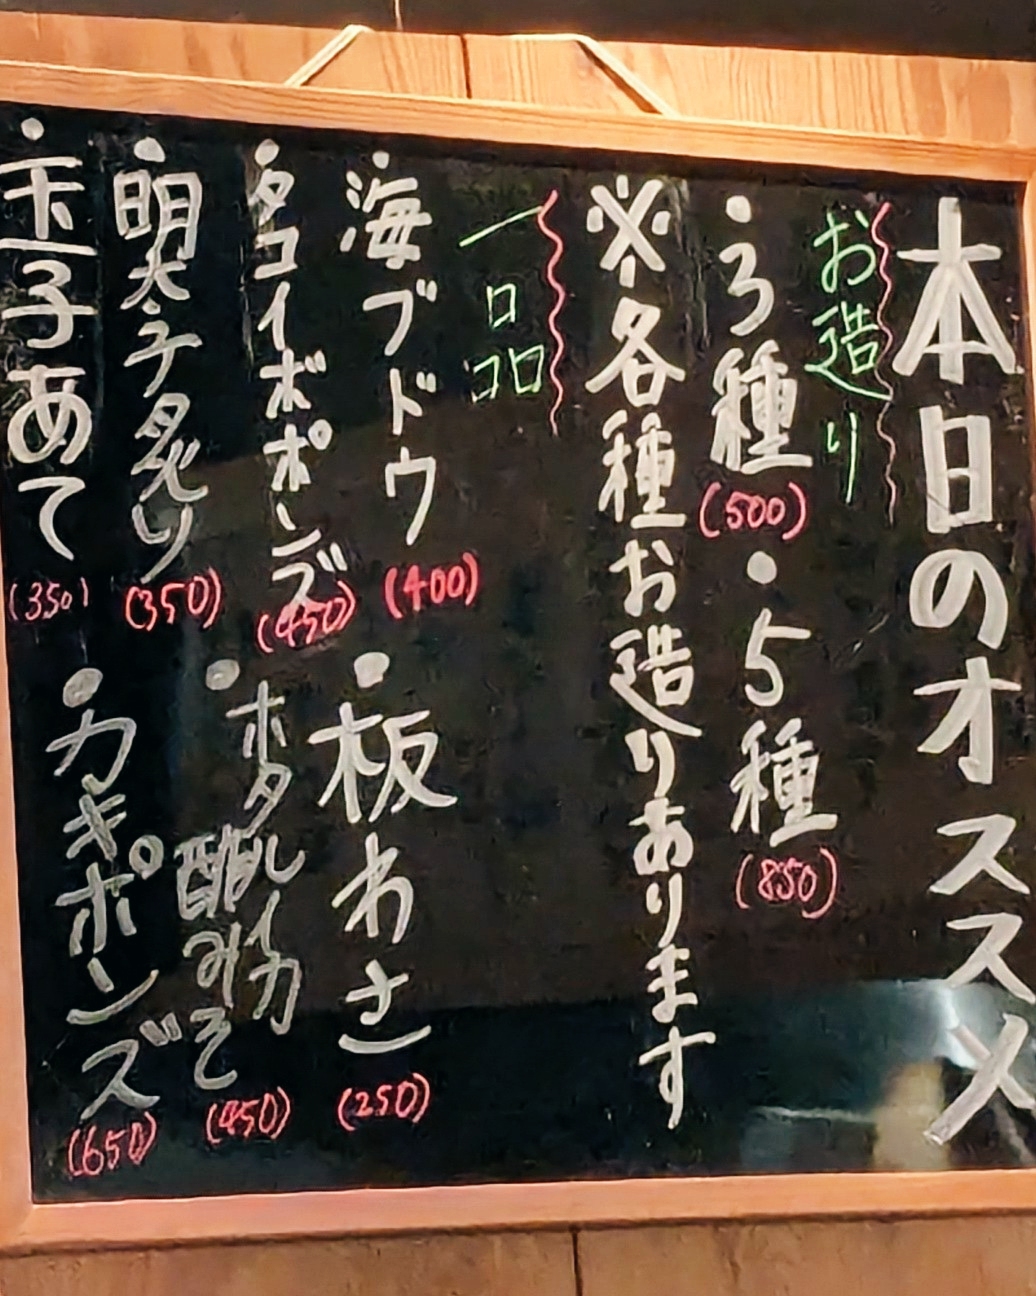 本日のオススメ
お造り
・3種
(500)
・5種
(850)
※各種お造りあります
一口
コロ
・海ブドウ
(400)
・板わさ
(250)
・タコイボポンズ
(450)
・ホタルイカ
酢みそ
(450)
・明太子炙り
(350)
・カキポンズ
(650)
・玉子あて
(350)